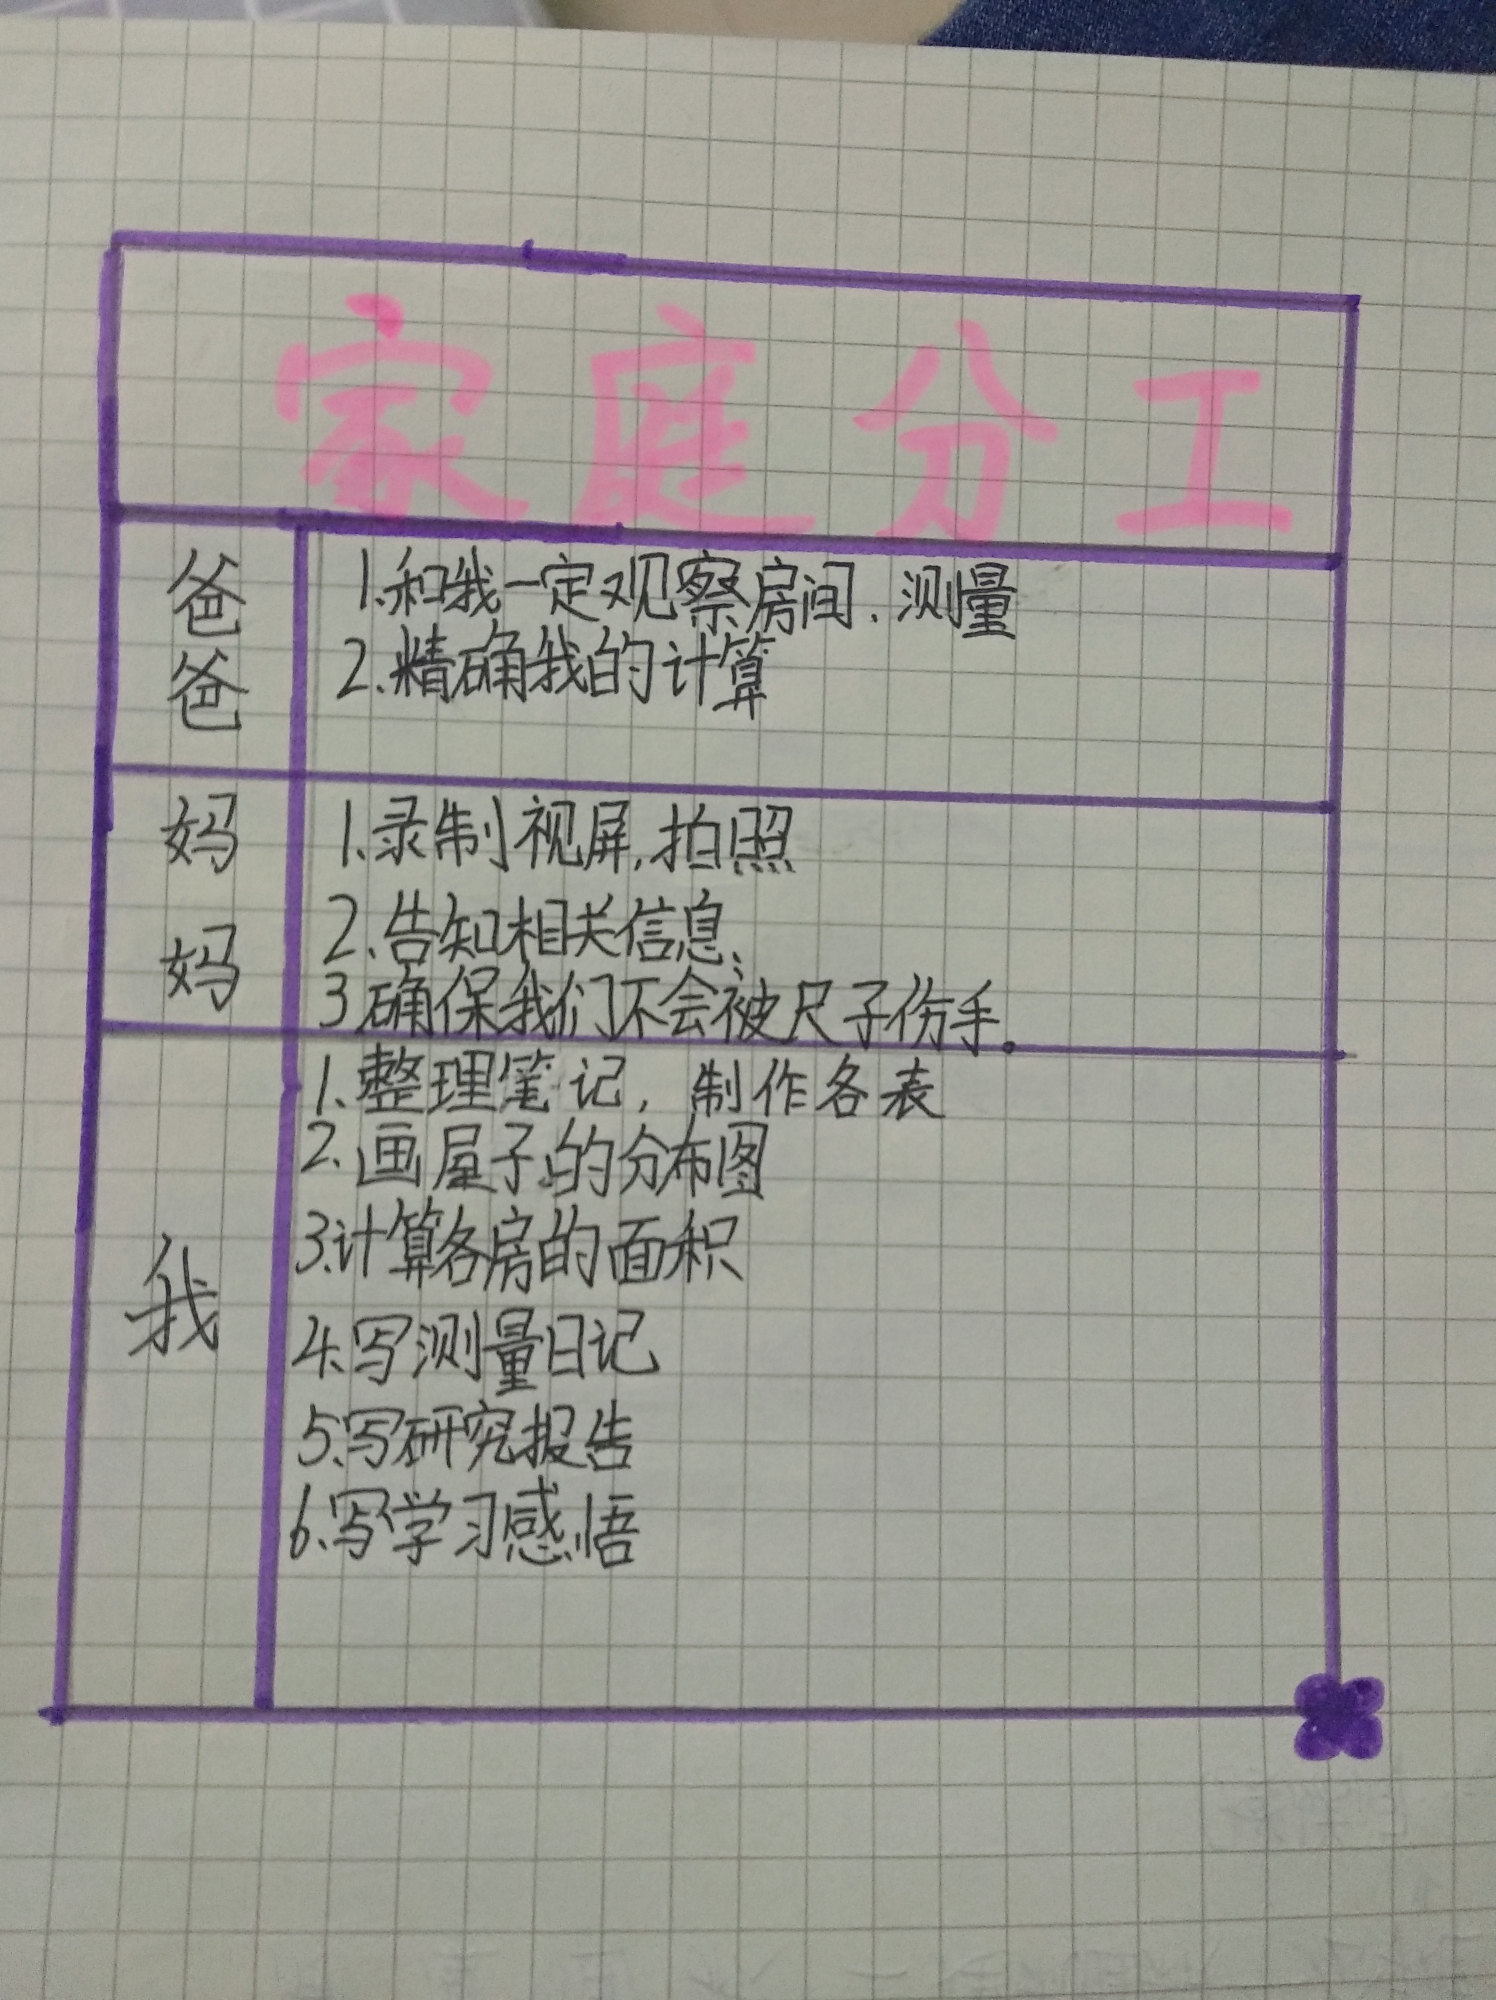 家庭分工
爸爸
1.和我一定观察房间、测量
2.精确我的计算
妈妈
1.录制视屏,拍照
2.告知相关信息、
3确保我们不会被尺子伤手。
我
1.整理笔记，制作各表
2.画屋子的分布图
3.计算各房的面积
4.写测量日记
5.写研究报告
6.写学习感悟